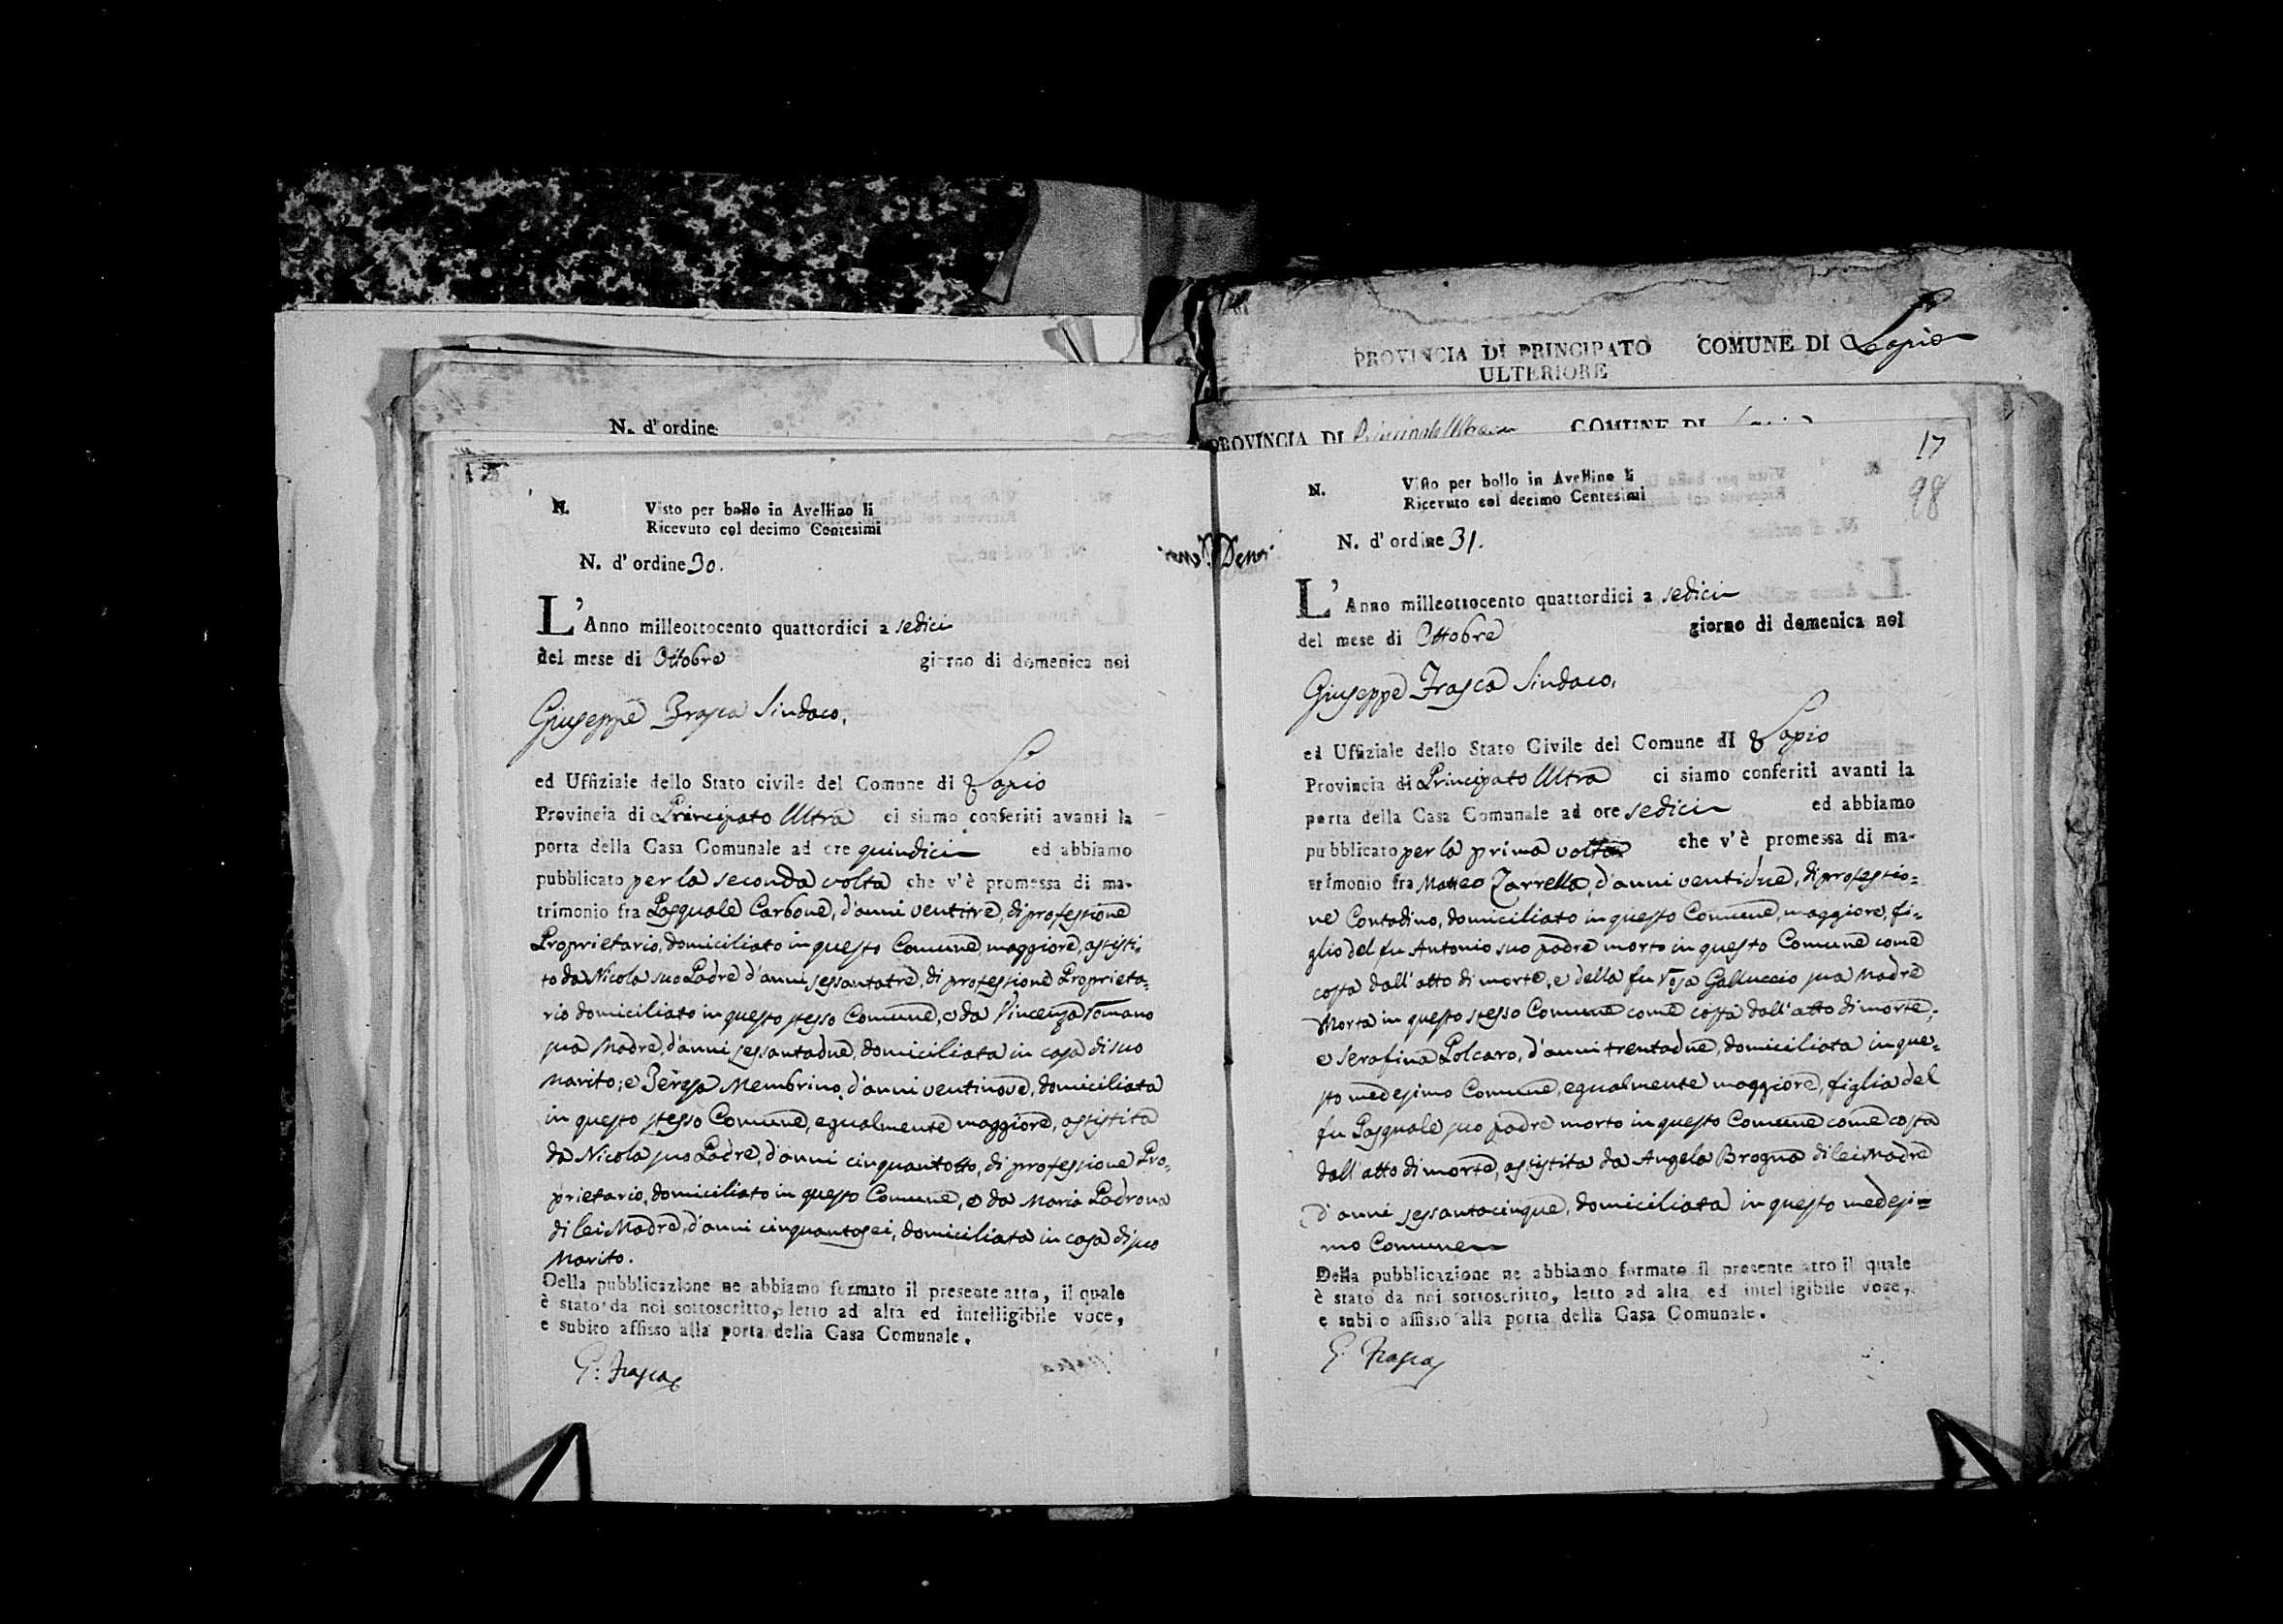 PROVINCIA DI PRINCIPATO COMUNE DI Lapio
ULTERIORE
N. d' ordine
PROVINCIA DI Principato Ultra COMUNE DI
N.
Visto per bollo in Avellino li
Ricevuto col decimo Centesimi
N. d' ordine 30.
L' Anno milleottocento quattordici a sedici
del mese di Ottobre giorno di domenica noi
Giuseppe Frasca Sindaco,
ed Uffiziale dello Stato civile del Comune di Lapio
Provincia di Principato Ultra ci siamo conferiti avanti la
porta della Casa Comunale ad ore quindici ed abbiamo
pubblicato per la seconda volta che v'è promessa di ma-
trimonio fra Pasquale Carbone, d'anni ventitre, di professione
Proprietario, domiciliato in questo Comune, maggiore, assisti-
to da Nicola suo Padre d'anni sessantatre, di professione Proprieta=
rio domiciliato in questo stesso Comune, e da Vincenza Romano
sua Madre, d'anni sessantadue, domiciliata in casa di suo
Marito; e Teresa Membrino, d'anni ventinove, domiciliata
in questo stesso Comune, egualmente maggiore, assistita
da Nicola suo Padre, d'anni cinquantotto, di professione Pro=
prietario, domiciliato in questo Comune, e da Maria Padrona
di lei Madre, d'anni cinquantasei, domiciliata in casa di suo
Marito.
Della pubblicazione ne abbiamo formato il presente atto, il quale
è stato da noi sottoscritto, letto ad alta ed intelligibile voce,
e subito affisso alla porta della Casa Comunale.
G: Frasca
17
98
N.
Visto per bollo in Avellino li
Ricevuto col decimo Centesimi
N. d' ordine 31.
L' Anno milleottocento quattordici a sedici
del mese di Ottobre giorno di domenica noi
Giuseppe Frasca Sindaco,
ed Uffiziale dello Stato Civile del Comune di Lapio
Provincia di Principato Ultra ci siamo conferiti avanti la
porta della Casa Comunale ad ore sedici ed abbiamo
pubblicato per la prima volta che v'è promessa di ma-
trimonio fra Matteo Zarrella, d'anni ventidue, di professio=
ne Contadino, domiciliato in questo Comune, maggiore, fi=
glio del fu Antonio suo padre morto in questo Comune come
costa dall'atto di morte, e della fu Rosa Galluccio sua Madre
Morta in questo stesso Comune come costa dall'atto di morte;
e Serafina Polcaro, d'anni trentadue, domiciliata in que=
sto medesimo Comune, egualmente maggiore, figlia del
fu Pasquale suo padre morto in questo Comune come costa
dall'atto di morte, assistita da Angela Brogna di lei Madre
d'anni sessantacinque, domiciliata in questo medesi=
mo Comune
Della pubblicazione ne abbiamo formato il presente atto il quale
è stato da noi sottoscritto, letto ad alta ed intelligibile voce,
e subito affisso alla porta della Casa Comunale.
G. Frasca